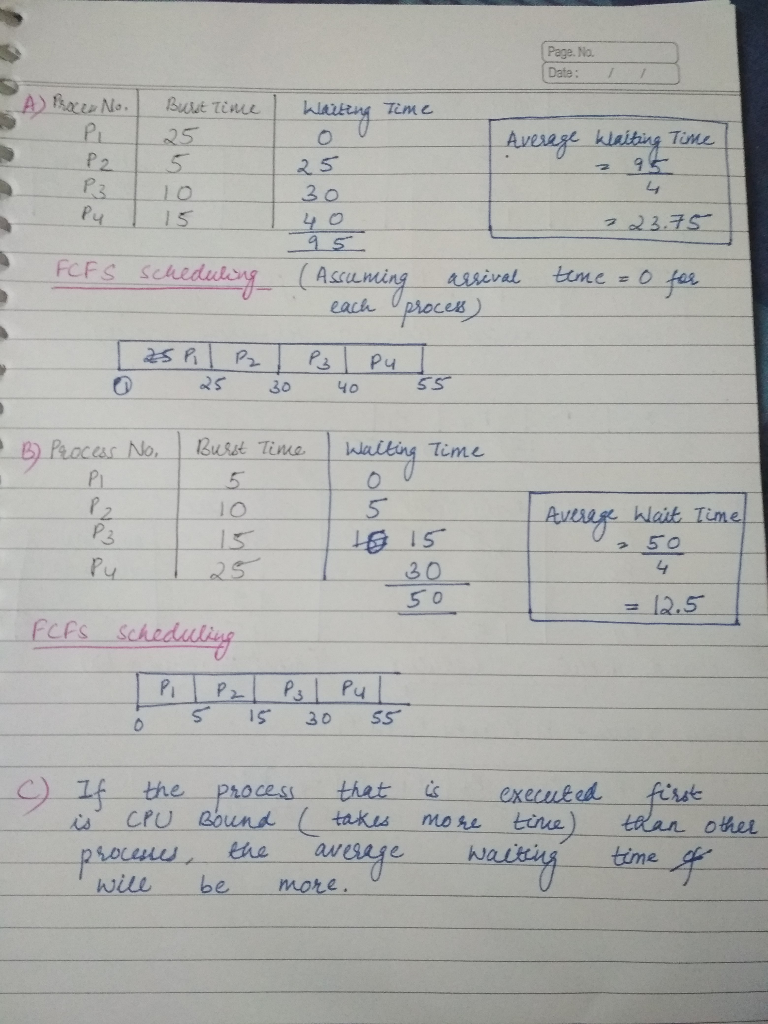 Page. No.
Date: / /
A) Process No. Burst Time Waiting Time
P1 25 0
P2 5 25
P3 10 30
P4 15 40
95
Average Waiting Time
= 95
4
= 23.75
FCFS Scheduling (Assuming arrival time = 0 for
each process)
P1 P2 P3 P4
0 25 30 40 55
B) Process No. Burst Time Waiting Time
P1 5 0
P2 10 5
P3 15 15
P4 25 30
50
Average Wait Time
= 50
4
= 12.5
FCFS Scheduling
P1 P2 P3 P4
0 5 15 30 55
C) If the process that is executed first
is CPU Bound (takes more time) than other
processes, the average waiting time
will be more.